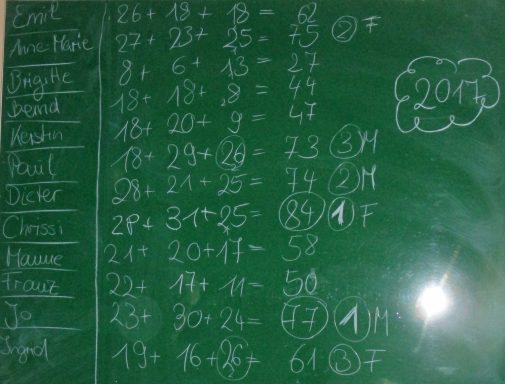 Emil 26+ 18+ 18= 62
Anne-Marie 27+ 23+ 25= 75 2 F
Brigitte 8+ 6+ 13= 27
Bernd 18+ 18+ 8= 44
Kerstin 18+ 20+ 9= 47
Paul 18+ 29+ 26= 73 3 M
Dieter 28+ 21+ 25= 74 2 M
Chrissi 28+ 31+ 25= 84 1 F
Manne 21+ 20+ 17= 58
Franz 22+ 17+ 11= 50
Jo 23+ 30+ 24= 77 1 M
Ingrid 19+ 16+ 26= 61 3 F
2017